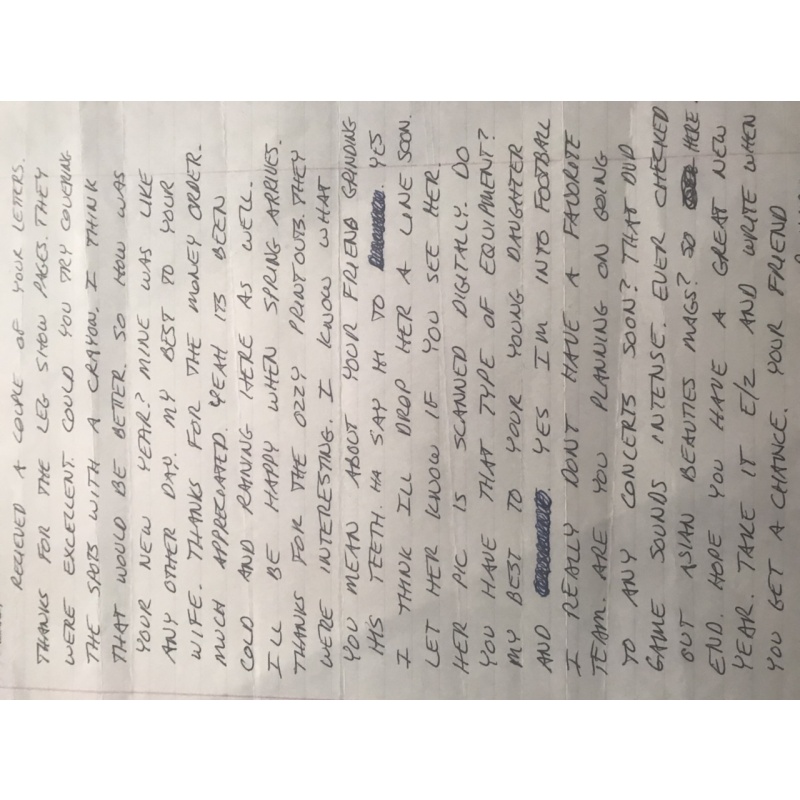 RECIEVED A COUPLE OF YOUR LETTERS.
THANKS FOR THE LEG SHOW PAGES. THEY
WERE EXCELLENT. COULD YOU TRY COVERING
THE SPOTS WITH A CRAYON. I THINK
THAT WOULD BE BETTER. SO HOW WAS
YOUR NEW YEAR? MINE WAS LIKE
ANY OTHER DAY. MY BEST TO YOUR
WIFE. THANKS FOR THE MONEY ORDER.
MUCH APPRECIATED. YEAH ITS BEEN
COLD AND RAINING HERE AS WELL.
I LL BE HAPPY WHEN SPRING ARRIVES.
THANKS FOR THE OZZY PRINTOUTS. THEY
WERE INTERESTING. I KNOW WHAT
YOU MEAN ABOUT YOUR FRIEND GRINDING
HIS TEETH. HA SAY HI TO YES
I THINK ILL DROP HER A LINE SOON.
LET HER KNOW IF YOU SEE HER.
HER PIC IS SCANNED DIGITALLY. DO
YOU HAVE THAT TYPE OF EQUIPMENT?
MY BEST TO YOUR YOUNG DAUGHTER
AND YES I'M INTO FOOTBALL
I REALLY DONT HAVE A FAVORITE
TEAM. ARE YOU PLANNING ON GOING
TO ANY CONCERTS SOON? THAT DVD
GAME SOUNDS INTENSE. EVER CHECKED
OUT ASIAN BEAUTIES MAGS? SO HERE.
END. HOPE YOU HAVE A GREAT NEW
YEAR. TAKE IT E/Z AND WRITE WHEN
YOU GET A CHANCE. YOUR FRIEND